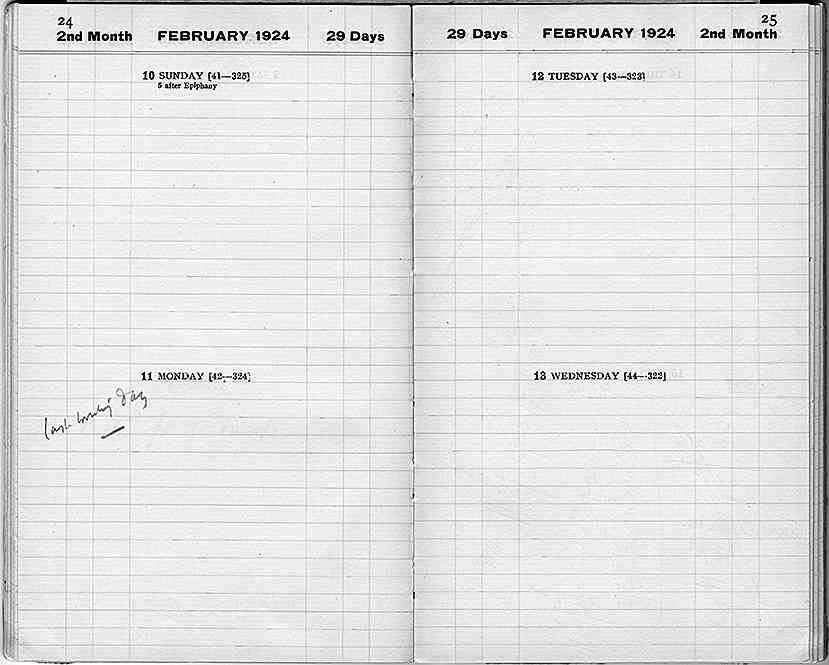 24
2nd Month FEBRUARY 1924 29 Days
10 SUNDAY [41—325]
5 after Epiphany
11 MONDAY [42—324]
last working day
25
29 Days FEBRUARY 1924 2nd Month
12 TUESDAY [43—323]
13 WEDNESDAY [44—322]